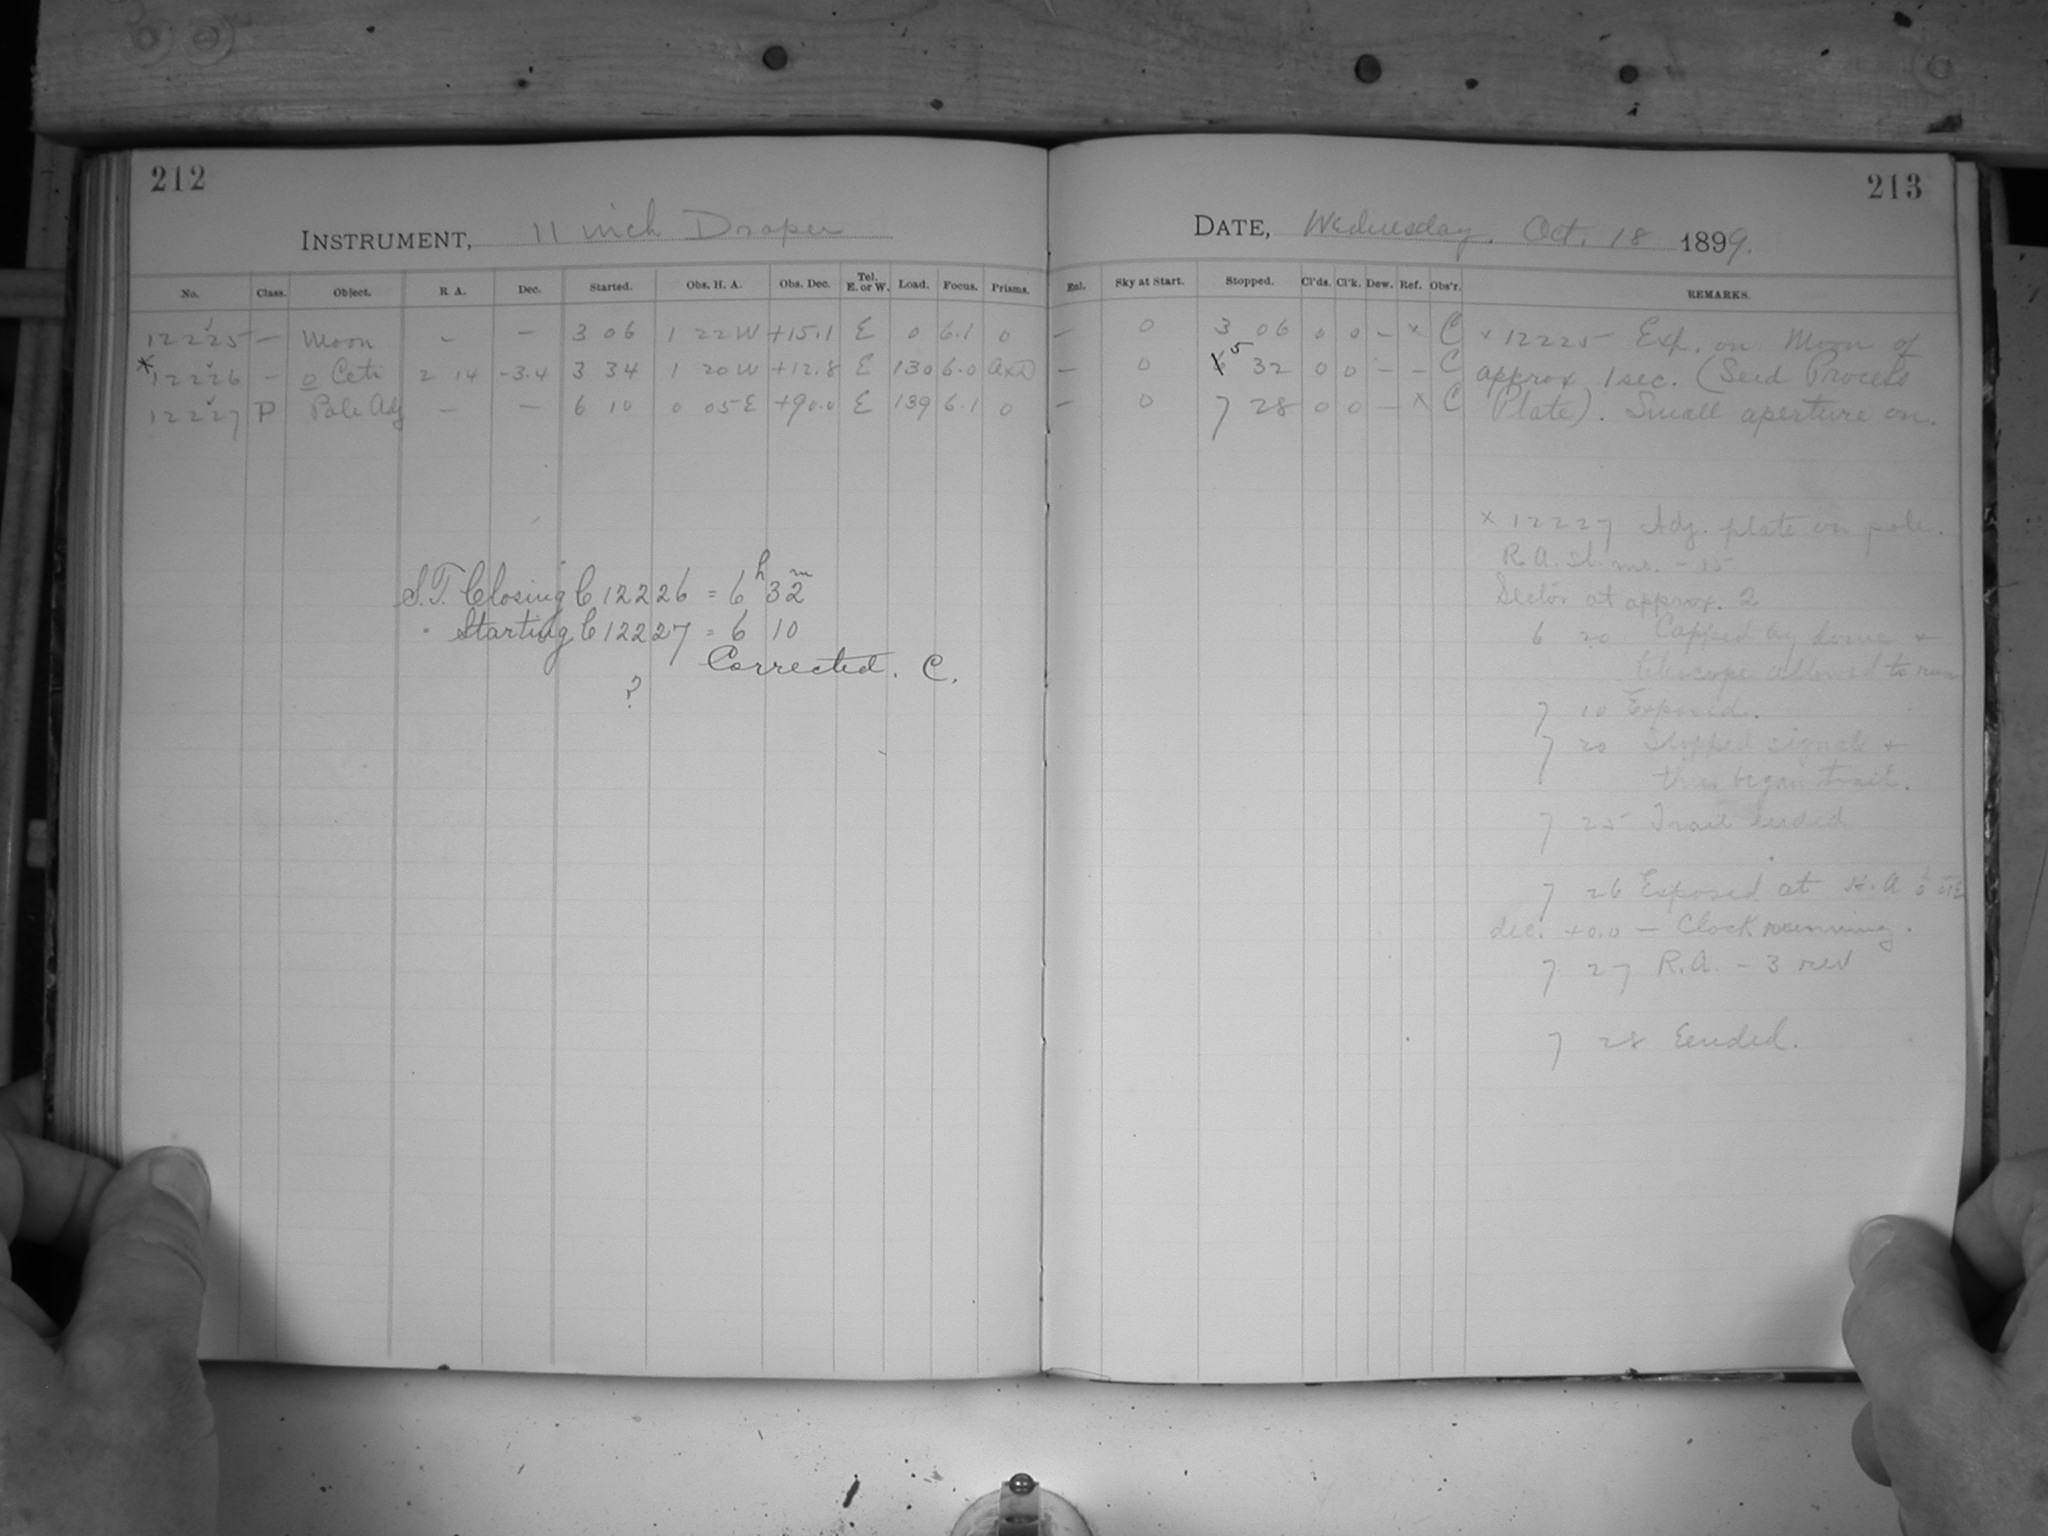 212
INSTRUMENT, 11 inch Draper
No. Class. Object. R. A. Dec. Started. Obs. H. A. Obs. Dec. Tel. E. or W. Load. Focus. Prisms.
12225 — Moon - — 3 06 1 22 W +15.1 E 0 6.1 0
* 12226 - o Ceti 2 14 -3.4 3 34 1 20 W +12.8 E 130 6.0
12227 P Pole Adj — — 6 10 0 05 E +90.0 E 139 6.1 0
S.T. Closing C 12226 = 6h 32m
" Starting C 12227 = 6 10
Corrected. C.
?
213
DATE, Wednesday, Oct. 18 1899.
Enl. Sky at Start. Stopped. Cl'ds. Cl'k. Dew. Ref. Obs'r. REMARKS.
— 0 3 06 0 0 — x C x 12225 - Exp. on Moon of
— 0 5 32 0 0 - - C approx 1 sec. (Seed Process
— 0 7 28 0 0 — x C Plate). Small aperture on.
x 12227 Adj. plate on pole.
R.A. - 15
Sector at approx. 2
6 20 Capped by dome +
telescope allowed to run
7 10 Exposed.
7 20 Stopped signals +
began trail.
7 25 Trail ended
7 26 Exposed at H.A
dec. +0.0 — Clock running.
7 27 R.A. - 3 rev
7 28 Eended.